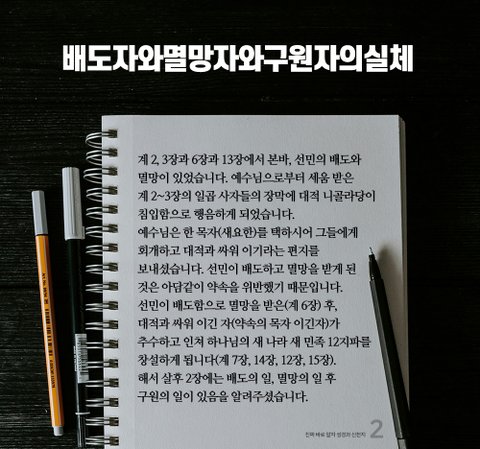 배도자와멸망자와구원자의실체
계 2, 3장과 6장과 13장에서 본바, 선민의 배도와
멸망이 있었습니다. 예수님으로부터 세움 받은
계 2~3장의 일곱 사자들의 장막에 대적 니골라당이
침입함으로 행음하게 되었습니다.
예수님은 한 목자(새요한)를 택하시어 그들에게
회개하고 대적과 싸워 이기라는 편지를
보내셨습니다. 선민이 배도하고 멸망을 받게 된
것은 아담같이 약속을 위반했기 때문입니다.
선민이 배도함으로 멸망을 받은(계 6장) 후,
대적과 싸워 이긴 자(약속의 목자 이긴자)가
추수하고 인쳐 하나님의 새 나라 새 민족 12지파를
창설하게 됩니다(계 7장, 14장, 12장, 15장).
해서 살후 2장에는 배도의 일, 멸망의 일 후
구원의 일이 있음을 알려주셨습니다.
진짜 바로 알자 성경과 신천지 2